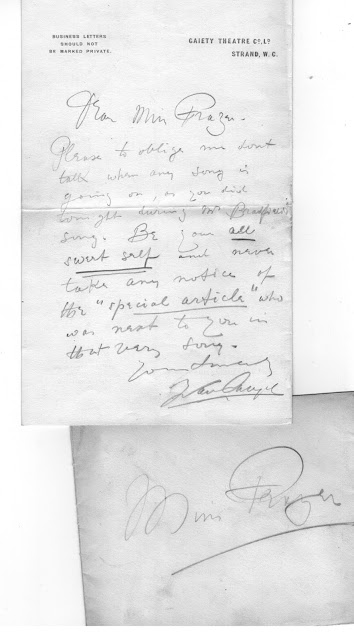 BUSINESS LETTERS
SHOULD NOT
BE MARKED PRIVATE.
GAIETY THEATRE Co. Ld.
STRAND, W.C.
Dear Miss Frazer.
Please to oblige me dont
talk when any song is
going on, as you did
tonight during Mr Bradfield's
song. Be your all
sweet self and never
take any notice of
the "special article" who
was next to you in
that very song.
Yours Sincerely
Ivan Caryll
Miss Frazer